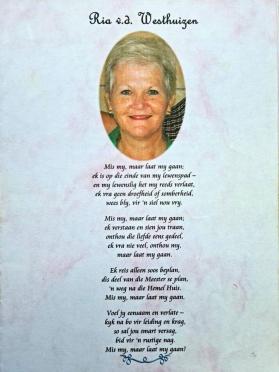 Ria v.d. Westhuizen
Mis my, maar laat my gaan;
ek is op die einde van my lewenspad –
en my lewenslig het my reeds verlaat,
ek vra geen droefheid of somberheid,
wees bly, vir 'n siel nou vry.
Mis my, maar laat my gaan;
ek verstaan en sien jou traan,
onthou die liefde eens gedeel,
ek vra nie veel, onthou my,
maar laat my gaan.
Ek reis alleen soos beplan,
dis deel van die Meester se plan,
'n weg na die Hemel Huis.
Mis my, maar laat my gaan.
Voel jy eensaam en verlate –
kyk na bo vir leiding en krag,
so sal jou smart versag,
bid vir 'n rustige nag.
Mis my, maar laat my gaan!